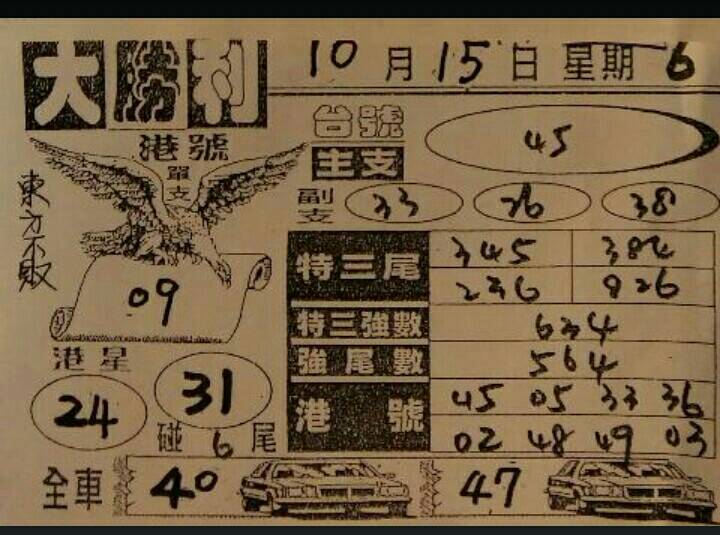 大勝利
10月15日 星期6
港號
單支
東方不敗
09
台號
主支
45
副支
33 26 38
特三尾
345 384
236 926
特三強數
634
強尾數
564
港號
45 05 33 36
02 48 49 03
港星
24 31
碰6尾
全車
40 47